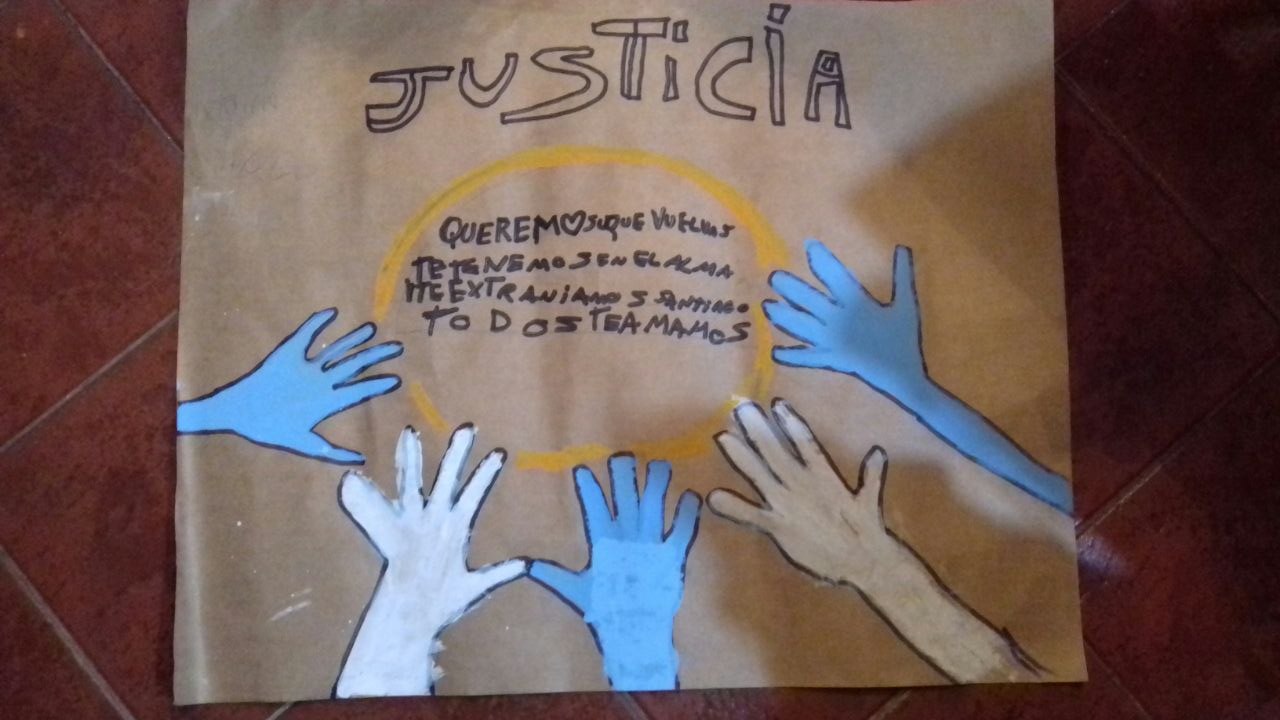 JUSTICIA
QUEREMOS QUE VUELVAS
TE TENEMOS EN EL ALMA
TE EXTRANIAMOS SANTIAGO
TODOS TE AMAMOS